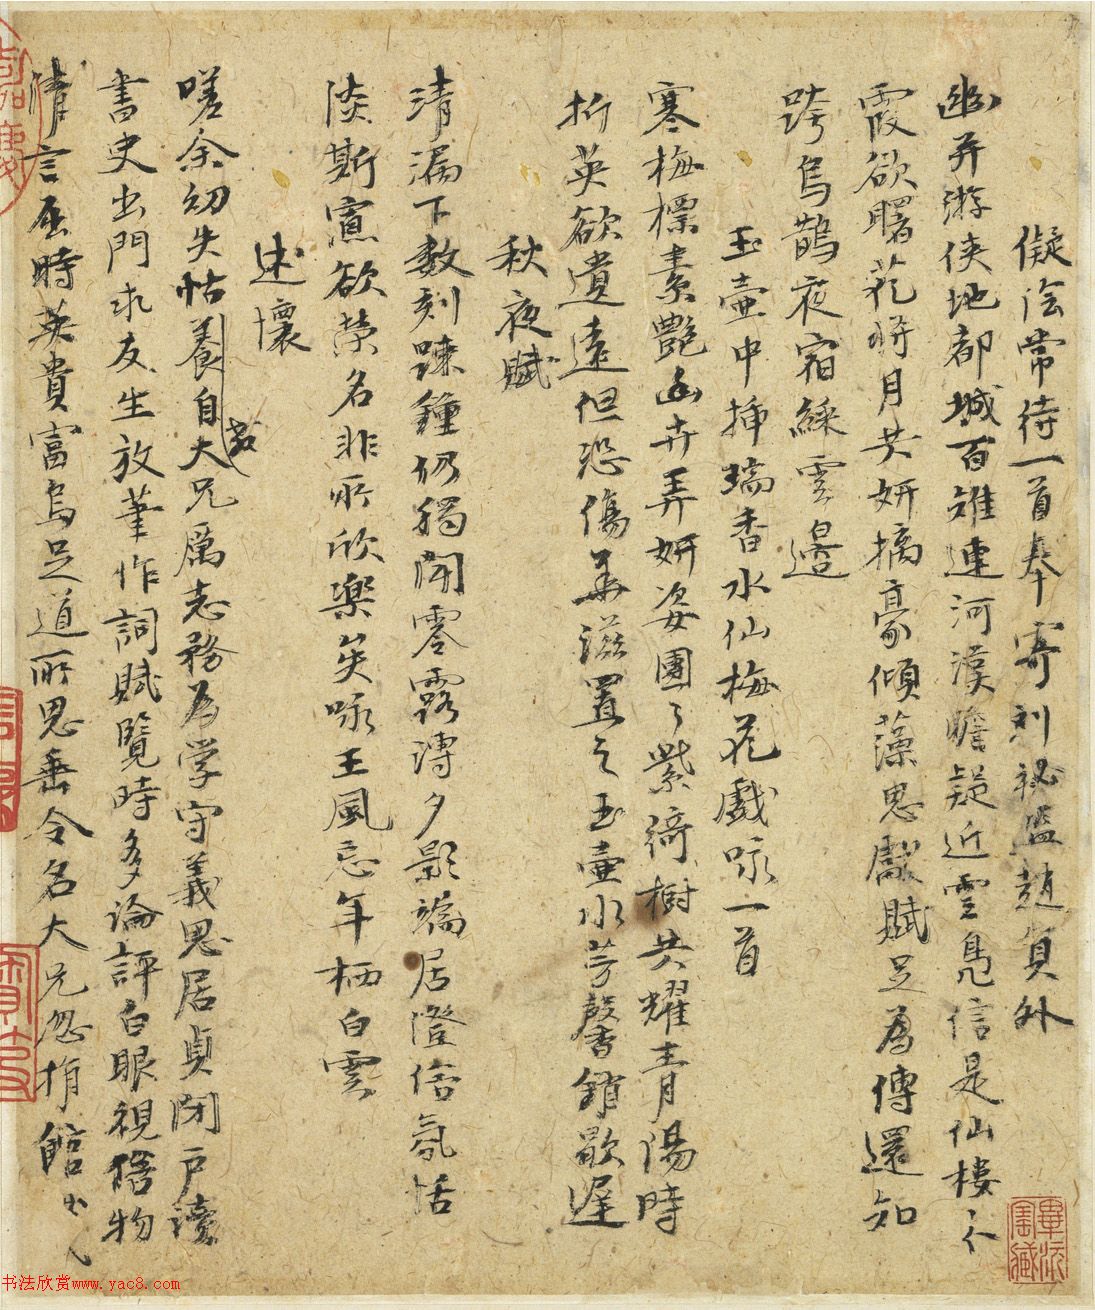 儗陰常侍一首奉寄刘秘監趙員外
幽并游侠地都城百雉連河漢瞻疑近雲鳧信是仙樓
霞欲曙花將月共妍摛豪傾藻思獻賦足為傳還知
跨烏鵲夜宿綵雲邉
玉壷中揷瑞香水仙梅花戲咏一首
寒梅標素艷幽卉弄妍姿團〻紫綺樹共耀青陽時
折英欲遺遠但恐傷華滋置之玉壷冰芳馨銷歇遲
秋夜賦
清漏下数刻踈鐘仍獨聞零露漙夕影端居澄俗氛恬
淡斯寘欲榮名非所欣樂矣咏王風忘年栖白雲
述懷
嗟余幼失怙養自大兄厲志務為学守義思居貞閉户读
書史出門求友生放筆作詞賦覽時多論評白眼視俗物
清言屈時英貴富烏足道所思垂令名大兄忽捐館
書法欣赏www.yac8.com